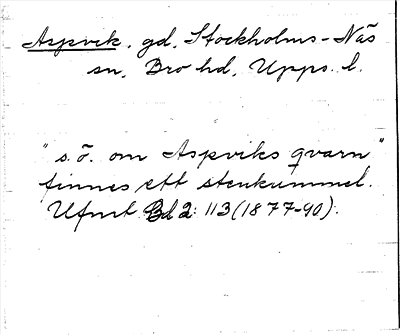 Aspvik. gd, Stockholms-Näs
sn, Bro hd, Upps. l.
"s.ö. om Aspviks qvarn"
finnes ett stenkummel.
Ufmt Bd 2: 113 (1877-90).